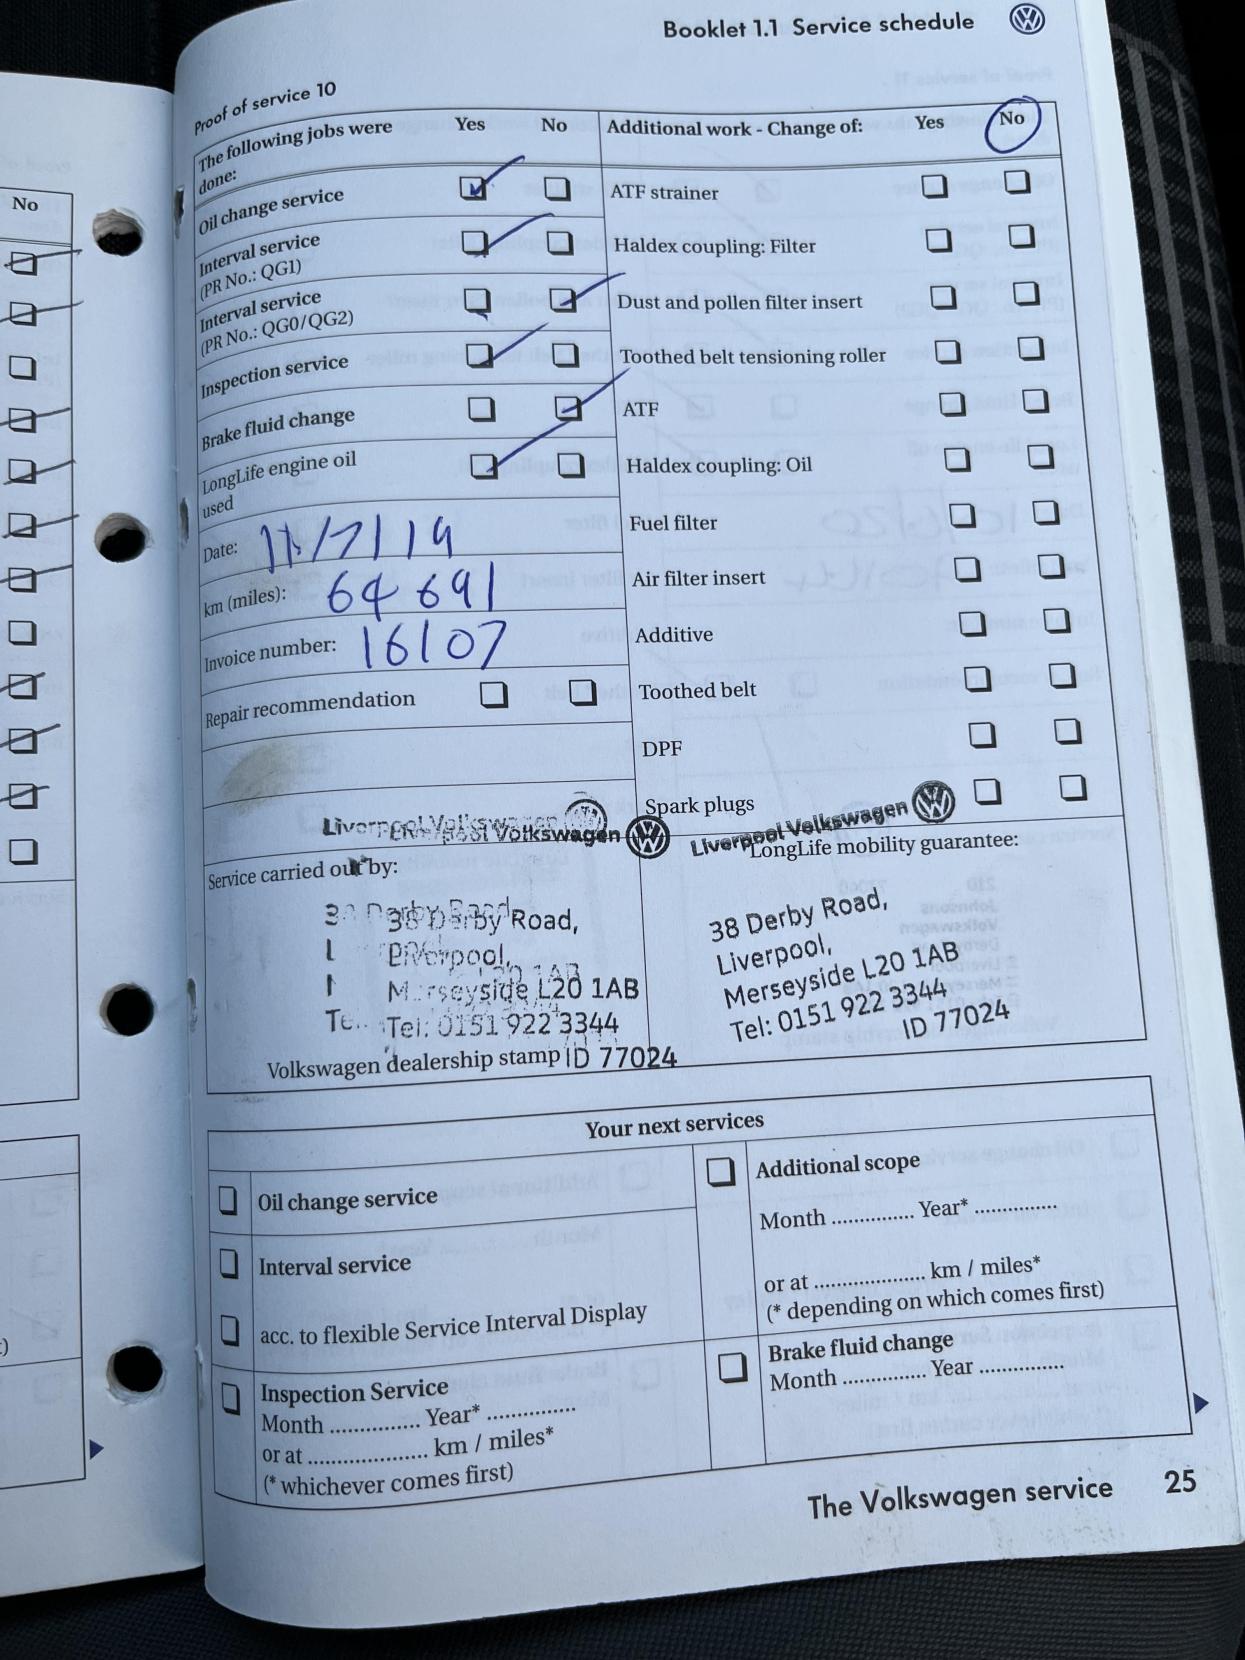 Booklet 1.1 Service schedule
Proof of service 10
The following jobs were done: Yes No
Oil change service
Interval service
(PR No.: QG1)
Interval service
(PR No.: QG0/QG2)
Inspection service
Brake fluid change
LongLife engine oil
used
Date: 11/7/19
km (miles): 64 691
Invoice number: 16107
Repair recommendation
Additional work - Change of: Yes No
ATF strainer
Haldex coupling: Filter
Dust and pollen filter insert
Toothed belt tensioning roller
ATF
Haldex coupling: Oil
Fuel filter
Air filter insert
Additive
Toothed belt
DPF
Spark plugs
Liverpool Volkswagen
Liverpool Volkswagen
Service carried out by:
38 Derby Road,
Liverpool,
Merseyside L20 1AB
Tel: 0151 922 3344
Volkswagen dealership stamp ID 77024
Liverpool Volkswagen
LongLife mobility guarantee:
38 Derby Road,
Liverpool,
Merseyside L20 1AB
Tel: 0151 922 3344
ID 77024
Your next services
Oil change service
Interval service
acc. to flexible Service Interval Display
Inspection Service
Month .............. Year* ..............
or at .................... km / miles*
(* whichever comes first)
Additional scope
Month .............. Year* ..............
or at .................... km / miles*
(* depending on which comes first)
Brake fluid change
Month .............. Year ..............
The Volkswagen service 25
No